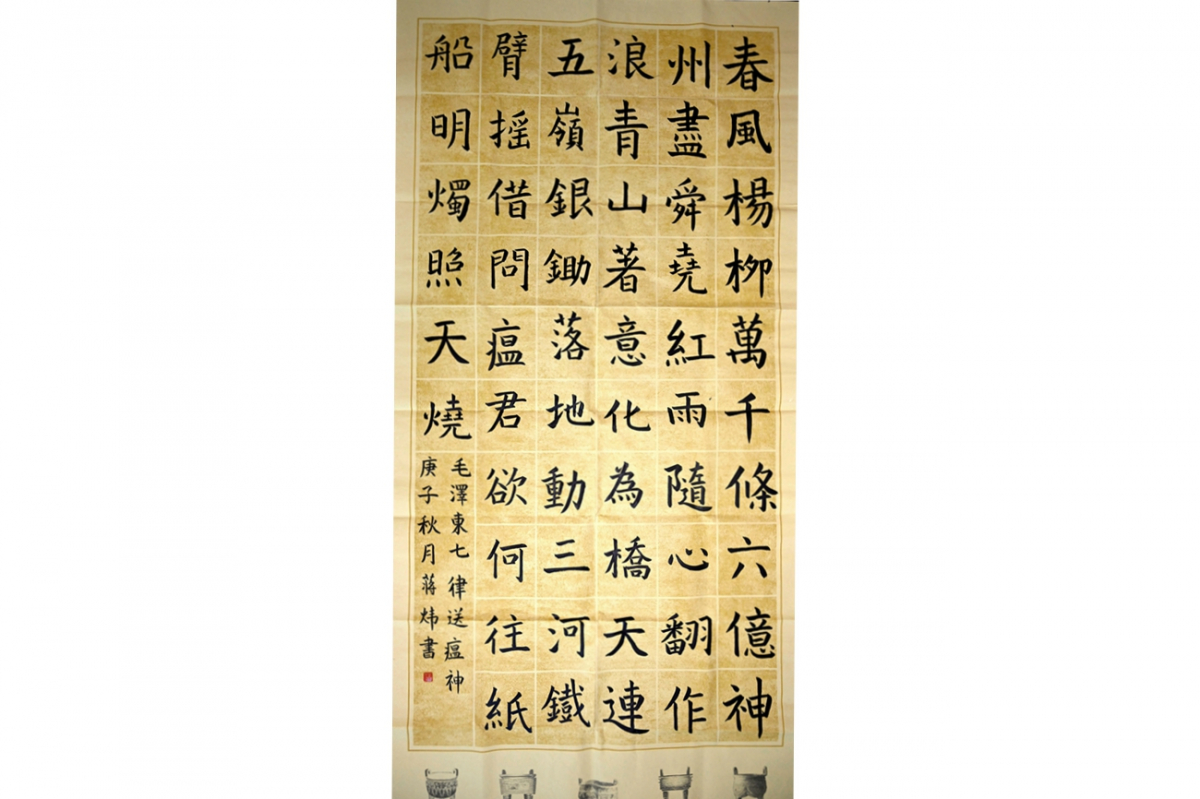 春風楊柳萬千條六億神
州盡舜堯紅雨隨心翻作
浪青山著意化為橋天連
五嶺銀鋤落地動三河鐵
臂摇借問瘟君欲何往紙
船明燭照天燒
毛澤東七律送瘟神
庚子秋月蔣炜書